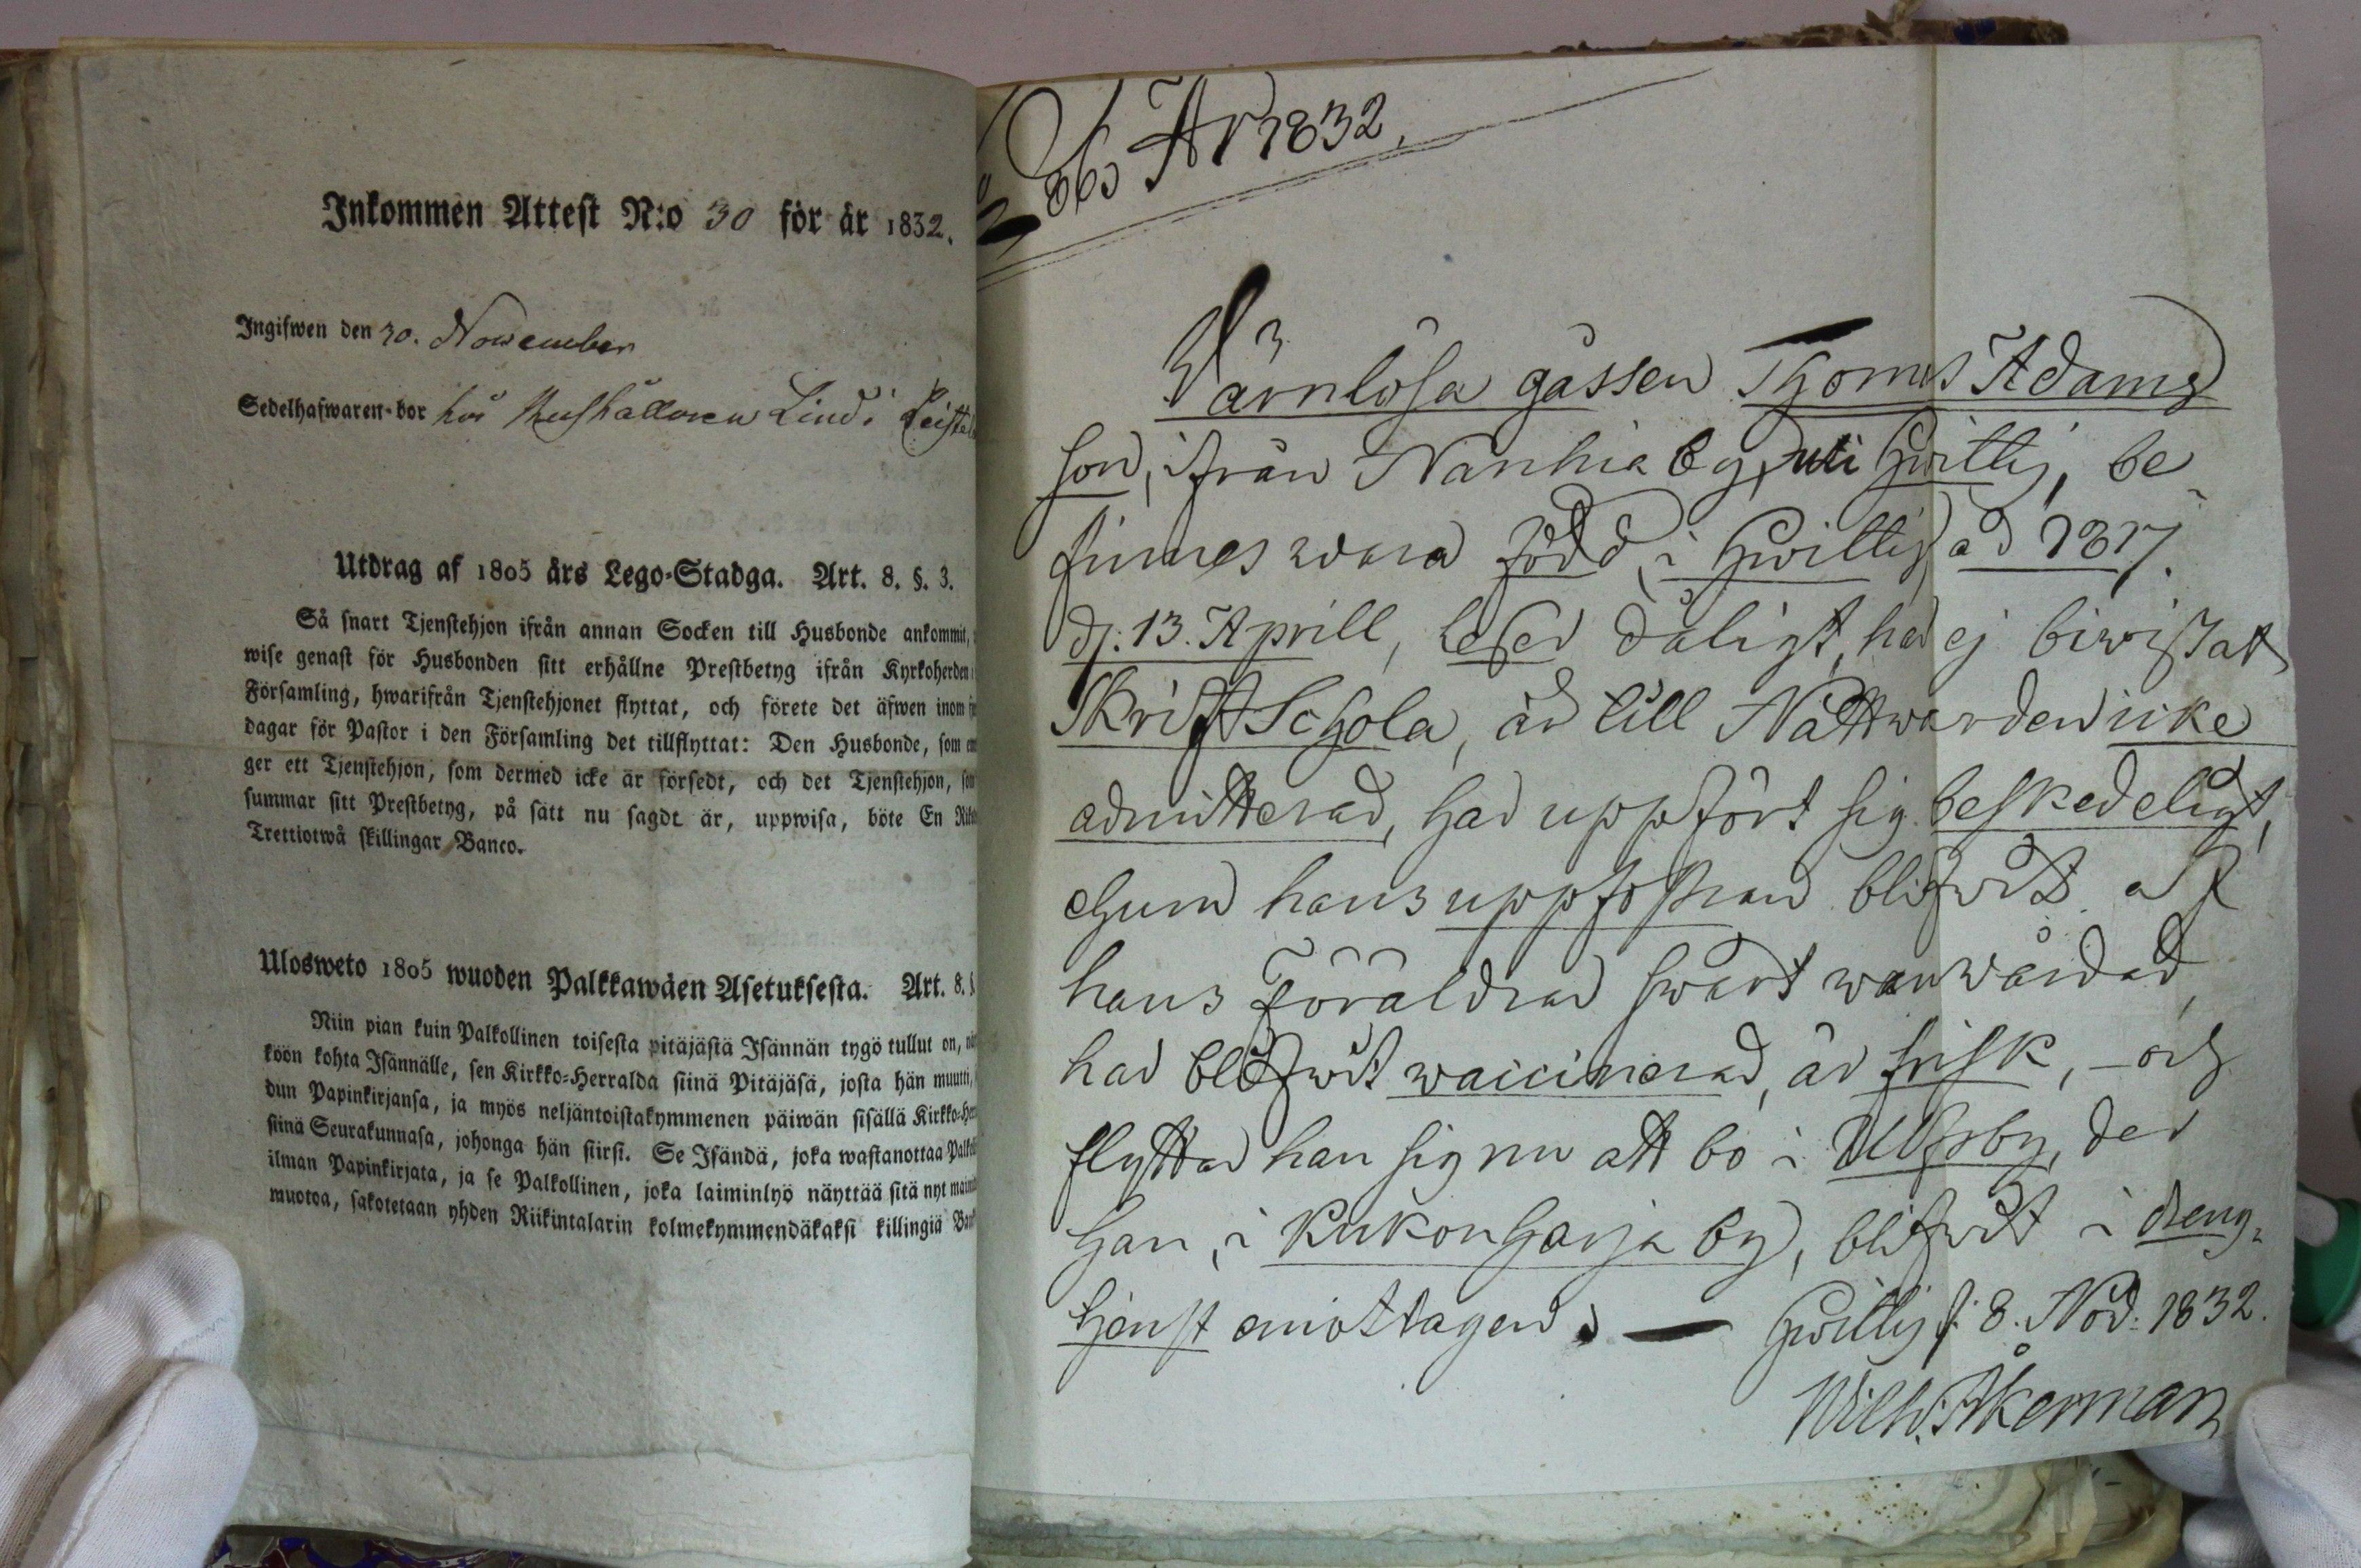 Inkommen Attest N:o 30 för år 1832.
Ingifwen den 30. November
Sedelhafwaren bor hos Rusthållaren Lind i
Utdrag af 1805 års Lego-Stadga. Art. 8. §. 3.
Så snart Tjenstehjon ifrån annan Socken till Husbonde ankommit,
wise genast för Husbonden sitt erhållne Prestbetyg ifrån Kyrkoherden
Församling, hwarifrån Tjenstehjonet flyttat, och förete det äfwen inom
dagar för Pastor i den Församling det tillflyttat: Den Husbonde, som
ger ett Tjenstehjon, som dermed icke är försedt, och det Tjenstehjon,
summar sitt Prestbetyg, på sätt nu sagdt är, uppwisa, böte En
Trettiotwå skillingar Banco.
Ulosweto 1805 wuoden Palkkawäen Asetuksesta. Art. 8. §
Niin pian kuin Palkollinen toisesta pitäjästä Isännän tygö tullut on,
köön kohta Isännälle, sen Kirkko-Herralda siinä Pitäjäsä, josta hän muutti,
dun Papinkirjansa, ja myös neljäntoistakymmenen päiwän sisällä
siinä Seurakunnasa, johonga hän siirsi. Se Isändä, joka wastanottaa
ilman Papinkirjata, ja se Palkollinen, joka laiminlyö näyttää sitä nyt
muotoa, sakotetaan yhden Riikintalarin kolmekymmendäkaksi killingiä
År 1832.
Värnlösa gåssen Thomas Adams
son, ifrån Nanhia by, uti Hwittis, be
finnes wara född i Hwittis åd 1817.
d. 13. Aprill, läser dåligt, har ej biwistat
SkriftSchola, är till Nattwarden icke
admitterad, har uppfört sig beskedeligt,
ehuru hans uppfostran blifwit af
hans Föräldrar swårt wanwårdad,
har blifwit waccinerad, är frisk, – och
flyttar han sig nu att bo i Ulfsby, der
han, i Kukonharja by, blifwit i dreng-
tjenst emottagen. — Hwittis d. 8. Nov. 1832.
Wilh. Åkerman